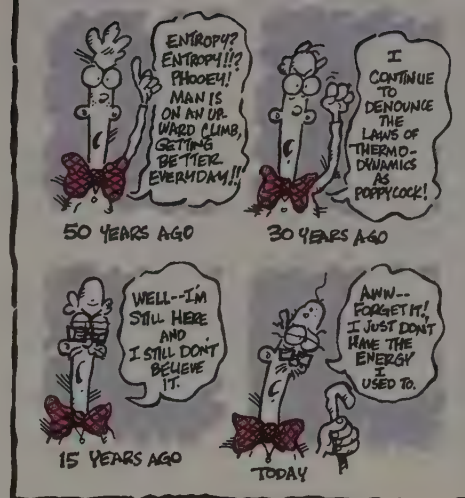 ENTROPY?
ENTROPY!!?
PHOOEY!
MAN IS
ON AN UP-
WARD CLIMB,
GETTING
BETTER
EVERYDAY!!
50 YEARS AGO
I
CONTINUE
TO
DENOUNCE
THE
LAWS OF
THERMO-
DYNAMICS
AS
POPPYCOCK!
30 YEARS AGO
WELL--I'M
STILL HERE
AND
I STILL DON'T
BELIEVE
IT.
15 YEARS AGO
AWW--
FORGET IT!
I JUST DON'T
HAVE THE
ENERGY
I
USED TO.
TODAY